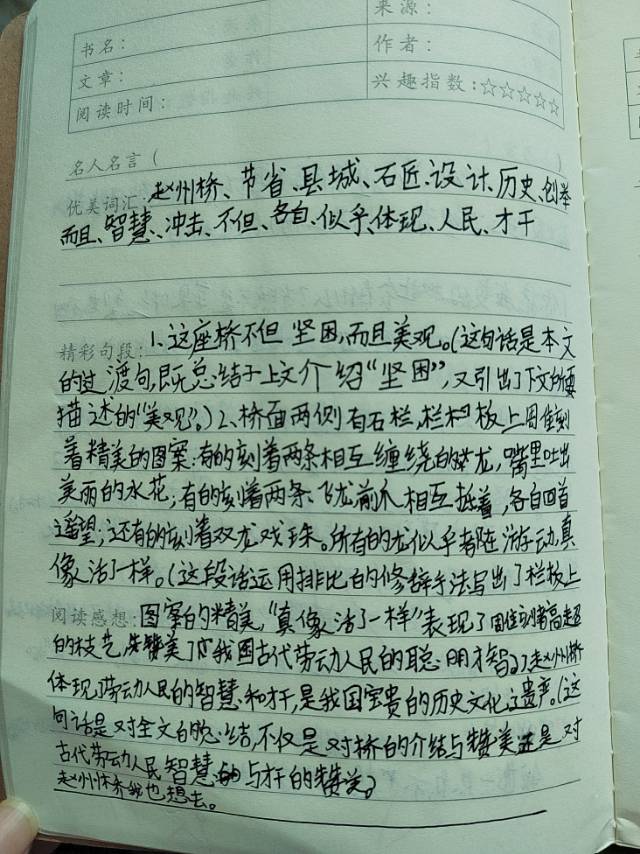 来源：
书名：
作者：
文章：
兴趣指数：☆☆☆☆☆
阅读时间：
名人名言（
优美词汇：赵州桥、节省、县城、石匠、设计、历史、创举
而且、智慧、冲击、不但、各自、似乎、体现、人民、才干
精彩句段：1、这座桥不但坚固，而且美观。(这句话是本文
的过渡句，既总结于上文介绍“坚固”，又引出了下文所要
描述的“美观”。)2、桥面两侧有石栏，栏板上周佳刻
着精美的图案：有的刻着两条相互缠绕的龙，嘴里吐出
美丽的水花；有的刻着两条飞龙，前爪相互抵着，各自回首
遥望；还有的刻着双龙戏珠。所有的龙似乎都在游动，真
像活了一样。(这段话运用排比的修辞手法写出了栏板上
阅读感想：图案的精美，“真像活了一样”表现了周佳刻者高超
的枝艺，赞美了我国古代劳动人民的聪明才智。)3赵州桥
体现劳动人民的智慧和才干，是我国宝贵的历史文化遗产。(这
句话是对全文的总结，不仅是对桥的介结与赞美还是对
古代劳动人民智慧与才干的赞美。
赵州桥我也想去。